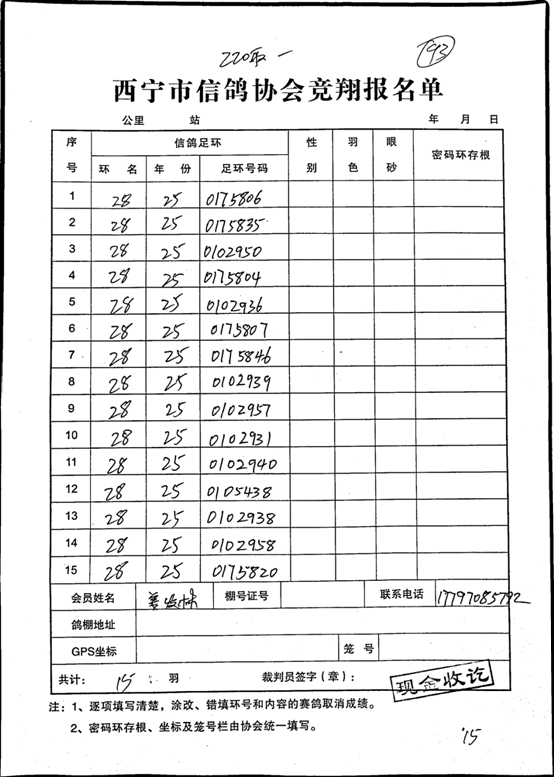 220取一
193
西宁市信鸽协会竞翔报名单
公里 站 年 月 日
序号 信鸽足环 性别 羽色 眼砂 密码环存根
环 名 年 份 足环号码
1 28 25 0175806
2 28 25 0175835
3 28 25 0102950
4 28 25 0175804
5 28 25 0102936
6 28 25 0175807
7 28 25 0175846
8 28 25 0102939
9 28 25 0102957
10 28 25 0102931
11 28 25 0102940
12 28 25 0105438
13 28 25 0102938
14 28 25 0102958
15 28 25 0175820
会员姓名 棚号证号 联系电话 17797085792
鸽棚地址
GPS坐标 笼 号
共计: 15 羽 裁判员签字(章):
现金收讫
注:1、逐项填写清楚,涂改、错填环号和内容的赛鸽取消成绩。
2、密码环存根、坐标及笼号栏由协会统一填写。
15